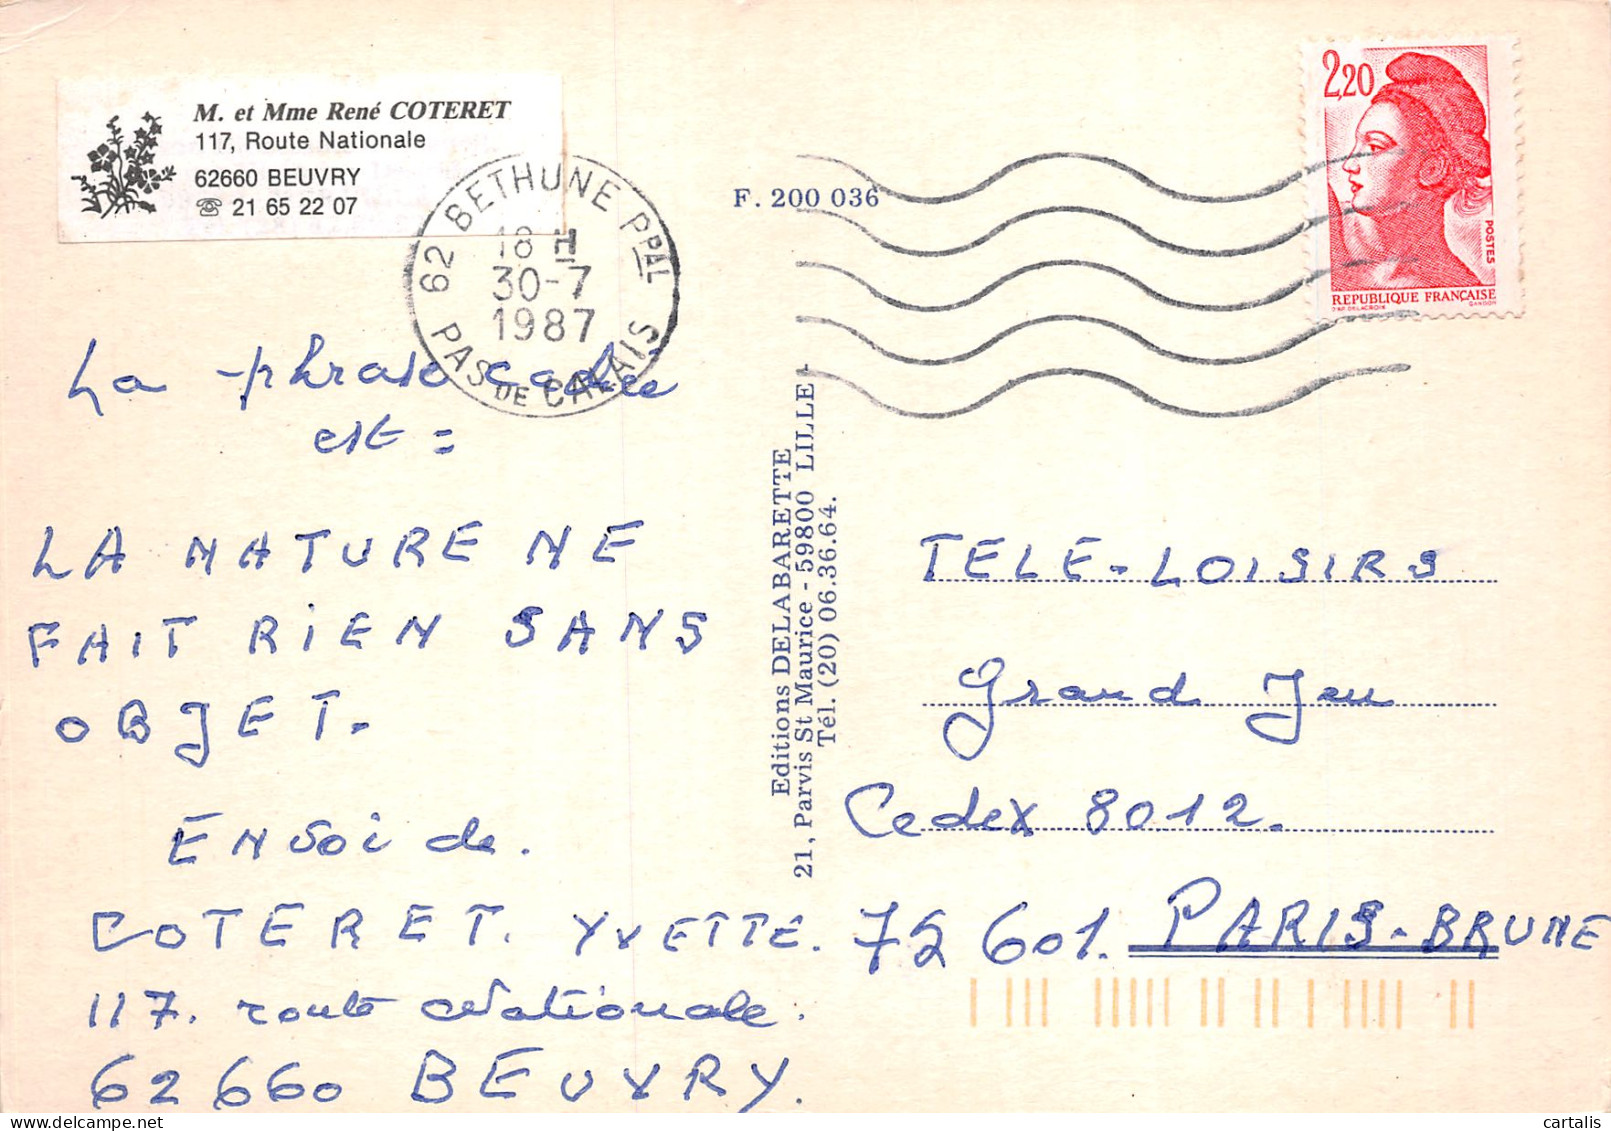 M. et Mme René COTERET
117, Route Nationale
62660 BEUVRY
☎ 21 65 22 07
62 BETHUNE PPAL
18 H
30-7
1987
PAS DE CALAIS
F. 200 036
2,20
POSTES
REPUBLIQUE FRANÇAISE
D'AP. DELACROIX GANDON
La phrase cachée
est =
LA NATURE NE
FAIT RIEN SANS
OBJET.
ENVOI de.
COTERET. YVETTE.
117. route Nationale.
62660 BEUVRY.
Editions DELABARETTE
21, Parvis St Maurice - 59800 LILLE -
Tél. (20) 06.36.64.
TELE-LOISIRS
Grand Jeu
Cedex 8012.
75601. PARIS-BRUNE
cartalis
delcampe.net